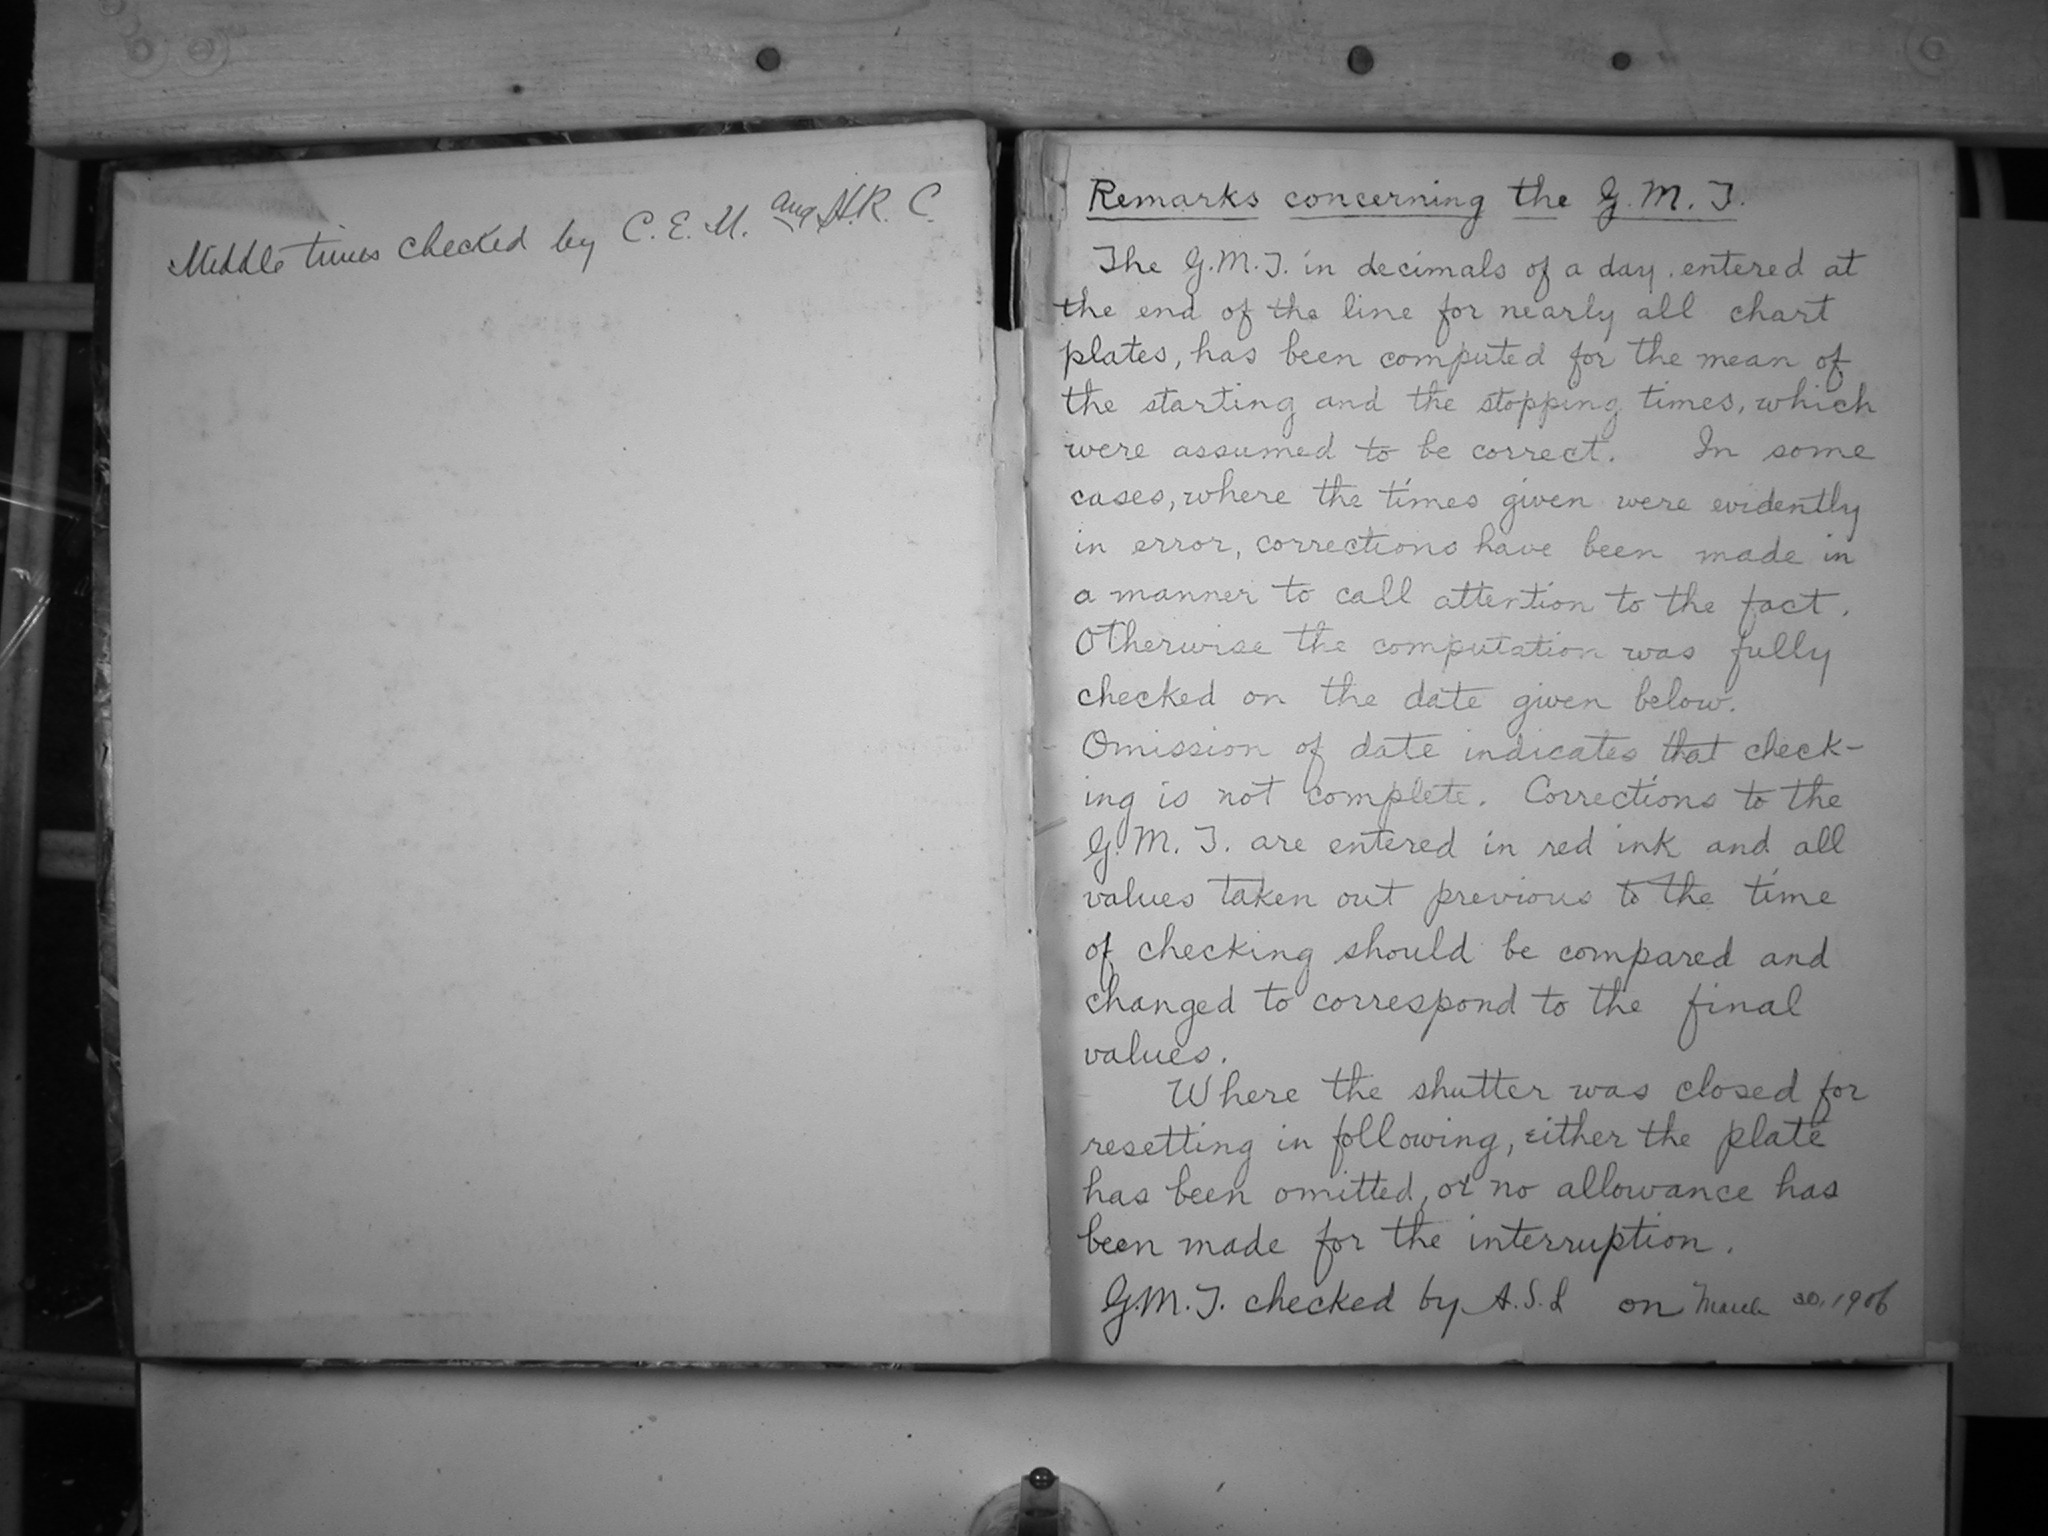 Middle times checked by C. E. M. and H. R. C.
Remarks concerning the G. M. T.
The G. M. T. in decimals of a day, entered at
the end of the line for nearly all chart
plates, has been computed for the mean of
the starting and the stopping times, which
were assumed to be correct. In some
cases, where the times given were evidently
in error, corrections have been made in
a manner to call attention to the fact.
Otherwise the computation was fully
checked on the date given below.
Omission of date indicates that check-
ing is not complete. Corrections to the
G. M. T. are entered in red ink and all
values taken out previous to the time
of checking should be compared and
changed to correspond to the final
values.
Where the shutter was closed for
resetting in following, either the plate
has been omitted, or no allowance has
been made for the interruption.
G. M. T. checked by A. S. L on March 1906